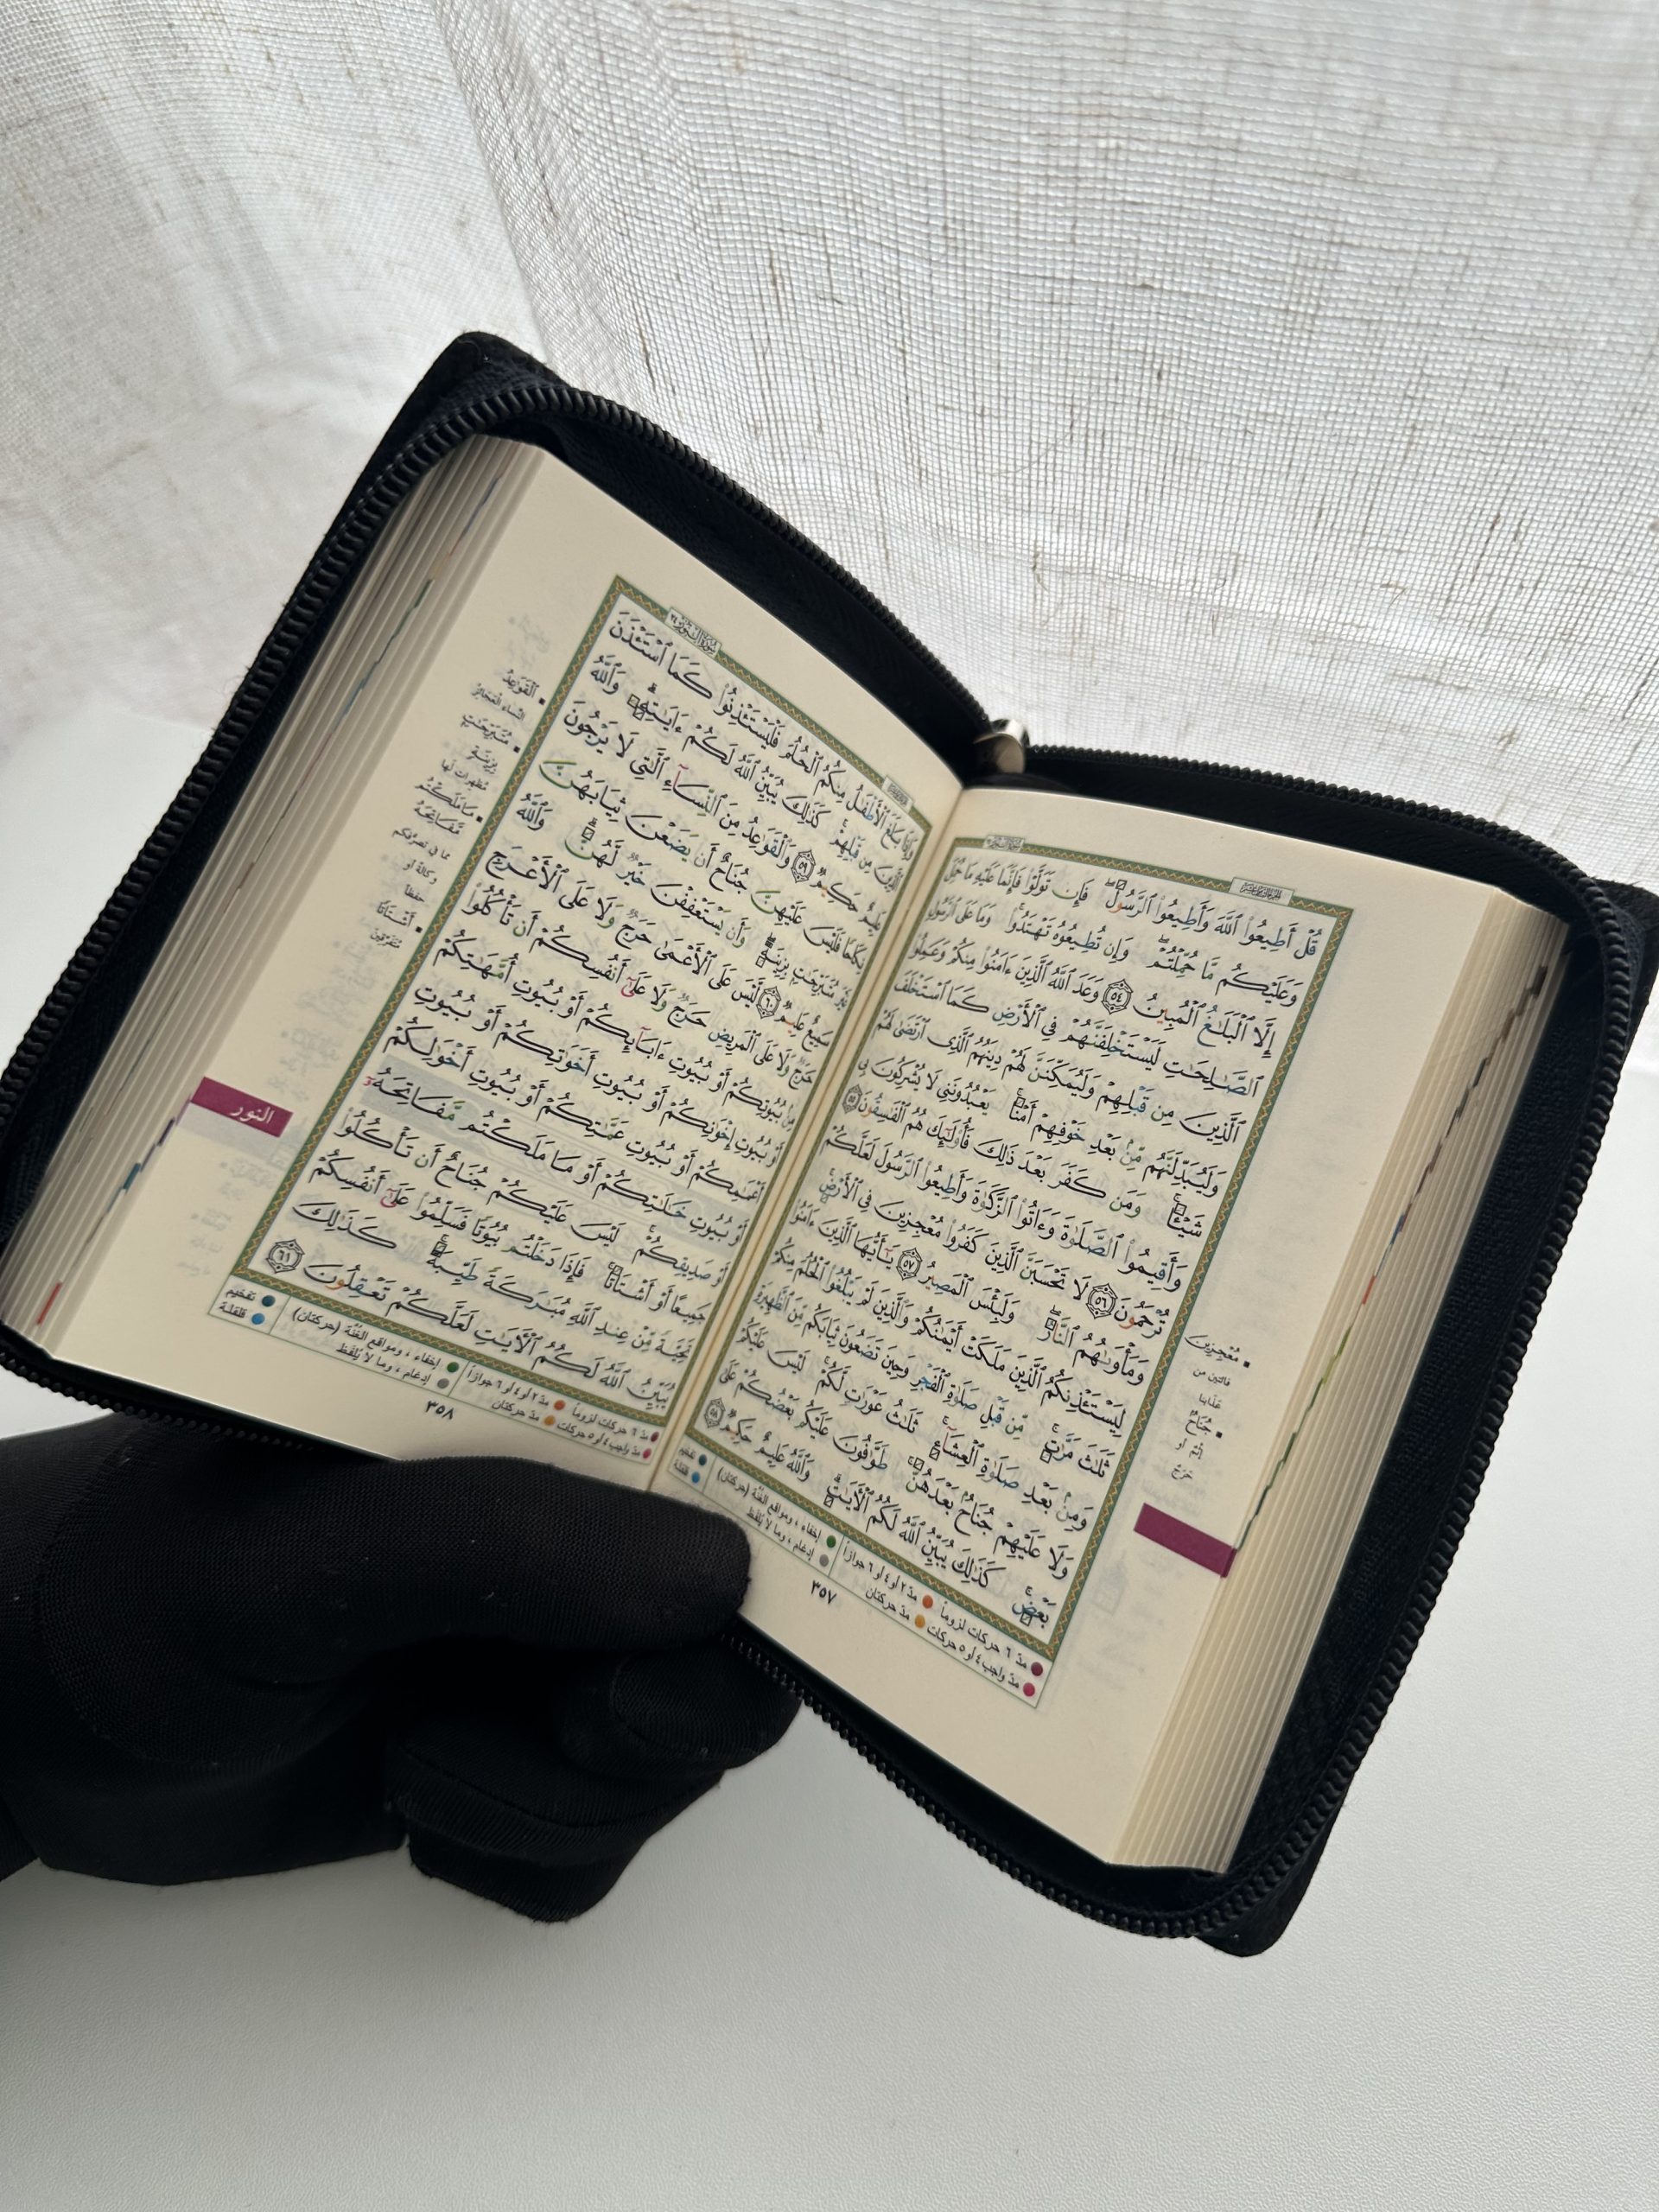 قُلْ أَطِيعُوا۟ ٱللَّهَ وَأَطِيعُوا۟ ٱلرَّسُولَ ۖ فَإِن تَوَلَّوْا۟ فَإِنَّمَا عَلَيْهِ مَا حُمِّلَ
وَعَلَيْكُم مَّا حُمِّلْتُمْ ۖ وَإِن تُطِيعُوهُ تَهْتَدُوا۟ ۚ وَمَا عَلَى ٱلرَّسُولِ
إِلَّا ٱلْبَلَـٰغُ ٱلْمُبِينُ ٥٤ وَعَدَ ٱللَّهُ ٱلَّذِينَ ءَامَنُوا۟ مِنكُمْ وَعَمِلُوا۟
ٱلصَّـٰلِحَـٰتِ لَيَسْتَخْلِفَنَّهُمْ فِى ٱلْأَرْضِ كَمَا ٱسْتَخْلَفَ
ٱلَّذِينَ مِن قَبْلِهِمْ وَلَيُمَكِّنَنَّ لَهُمْ دِينَهُمُ ٱلَّذِى ٱرْتَضَىٰ لَهُمْ
وَلَيُبَدِّلَنَّهُم مِّنۢ بَعْدِ خَوْفِهِمْ أَمْنًا ۚ يَعْبُدُونَنِى لَا يُشْرِكُونَ بِى
شَيْـًٔا ۚ وَمَن كَفَرَ بَعْدَ ذَٰلِكَ فَأُو۟لَـٰٓئِكَ هُمُ ٱلْفَـٰسِقُونَ ٥٥
وَأَقِيمُوا۟ ٱلصَّلَوٰةَ وَءَاتُوا۟ ٱلزَّكَوٰةَ وَأَطِيعُوا۟ ٱلرَّسُولَ لَعَلَّكُمْ
تُرْحَمُونَ ٥٦ لَا تَحْسَبَنَّ ٱلَّذِينَ كَفَرُوا۟ مُعْجِزِينَ فِى ٱلْأَرْضِ ۚ
وَمَأْوَىٰهُمُ ٱلنَّارُ ۖ وَلَبِئْسَ ٱلْمَصِيرُ ٥٧ يَـٰٓأَيُّهَا ٱلَّذِينَ ءَامَنُوا۟
لِيَسْتَـْٔذِنكُمُ ٱلَّذِينَ مَلَكَتْ أَيْمَـٰنُكُمْ وَٱلَّذِينَ لَمْ يَبْلُغُوا۟ ٱلْحُلُمَ مِنكُمْ
ثَلَـٰثَ مَرَّٰتٍ ۚ مِّن قَبْلِ صَلَوٰةِ ٱلْفَجْرِ وَحِينَ تَضَعُونَ ثِيَابَكُم مِّنَ ٱلظَّهِيرَةِ
وَمِنۢ بَعْدِ صَلَوٰةِ ٱلْعِشَآءِ ۚ ثَلَـٰثُ عَوْرَٰتٍ لَّكُمْ ۚ لَيْسَ عَلَيْكُمْ
وَلَا عَلَيْهِمْ جُنَاحٌۢ بَعْدَهُنَّ ۚ طَوَّٰفُونَ عَلَيْكُم بَعْضُكُمْ عَلَىٰ
بَعْضٍ ۚ كَذَٰلِكَ يُبَيِّنُ ٱللَّهُ لَكُمُ ٱلْـَٔايَـٰتِ ۗ وَٱللَّهُ عَلِيمٌ حَكِيمٌ ٥٨
مُعْجِزِينَ
فائتين من
عذابنا
جُنَاحٌ
إثم أو
حرج
مدّ ٦ حركات لزوماً
مدّ ٢ أو ٤ أو ٦ جوازاً
إخفاء ، ومواقع الغنّة (حركتان)
تفخيم
مدّ واجب ٤ أو ٥ حركات
مدّ حركتان
إدغام ، وما لا يُلفظ
قلقلة
٣٥٧
وَإِذَا بَلَغَ ٱلْأَطْفَـٰلُ مِنكُمُ ٱلْحُلُمَ فَلْيَسْتَـْٔذِنُوا۟ كَمَا ٱسْتَـْٔذَنَ
ٱلَّذِينَ مِن قَبْلِهِمْ ۚ كَذَٰلِكَ يُبَيِّنُ ٱللَّهُ لَكُمْ ءَايَـٰتِهِۦ ۗ وَٱللَّهُ
عَلِيمٌ حَكِيمٌ ٥٩ وَٱلْقَوَٰعِدُ مِنَ ٱلنِّسَآءِ ٱلَّـٰتِى لَا يَرْجُونَ
نِكَاحًا فَلَيْسَ عَلَيْهِنَّ جُنَاحٌ أَن يَضَعْنَ ثِيَابَهُنَّ
غَيْرَ مُتَبَرِّجَـٰتٍۭ بِزِينَةٍ ۖ وَأَن يَسْتَعْفِفْنَ خَيْرٌ لَّهُنَّ ۗ وَٱللَّهُ
سَمِيعٌ عَلِيمٌ ٦٠ لَّيْسَ عَلَى ٱلْأَعْمَىٰ حَرَجٌ وَلَا عَلَى ٱلْأَعْرَجِ
حَرَجٌ وَلَا عَلَى ٱلْمَرِيضِ حَرَجٌ وَلَا عَلَىٰٓ أَنفُسِكُمْ أَن تَأْكُلُوا۟
مِنۢ بُيُوتِكُمْ أَوْ بُيُوتِ ءَابَآئِكُمْ أَوْ بُيُوتِ أُمَّهَـٰتِكُمْ
أَوْ بُيُوتِ إِخْوَٰنِكُمْ أَوْ بُيُوتِ أَخَوَٰتِكُمْ أَوْ بُيُوتِ
أَعْمَـٰمِكُمْ أَوْ بُيُوتِ عَمَّـٰتِكُمْ أَوْ بُيُوتِ أَخْوَٰلِكُمْ
أَوْ بُيُوتِ خَـٰلَـٰتِكُمْ أَوْ مَا مَلَكْتُم مَّفَاتِحَهُۥٓ
أَوْ صَدِيقِكُمْ ۚ لَيْسَ عَلَيْكُمْ جُنَاحٌ أَن تَأْكُلُوا۟
جَمِيعًا أَوْ أَشْتَاتًا ۚ فَإِذَا دَخَلْتُم بُيُوتًا فَسَلِّمُوا۟ عَلَىٰٓ أَنفُسِكُمْ
تَحِيَّةً مِّنْ عِندِ ٱللَّهِ مُبَـٰرَكَةً طَيِّبَةً ۚ كَذَٰلِكَ
يُبَيِّنُ ٱللَّهُ لَكُمُ ٱلْـَٔايَـٰتِ لَعَلَّكُمْ تَعْقِلُونَ ٦١
الْقَوَاعِدُ
النساء العجائز
مُتَبَرِّجَـٰتٍ
بِزِينَةٍ
مظهرات لها
مَا مَلَكْتُم
مَفَاتِحَهُ
مما في تصرفكم
وكالة أو
حفظا
أَشْتَاتًا
متفرّقين
النور
مدّ ٦ حركات لزوماً
مدّ ٢ أو ٤ أو ٦ جوازاً
إخفاء ، ومواقع الغنّة (حركتان)
تفخيم
مدّ واجب ٤ أو ٥ حركات
مدّ حركتان
إدغام ، وما لا يُلفظ
قلقلة
٣٥٨